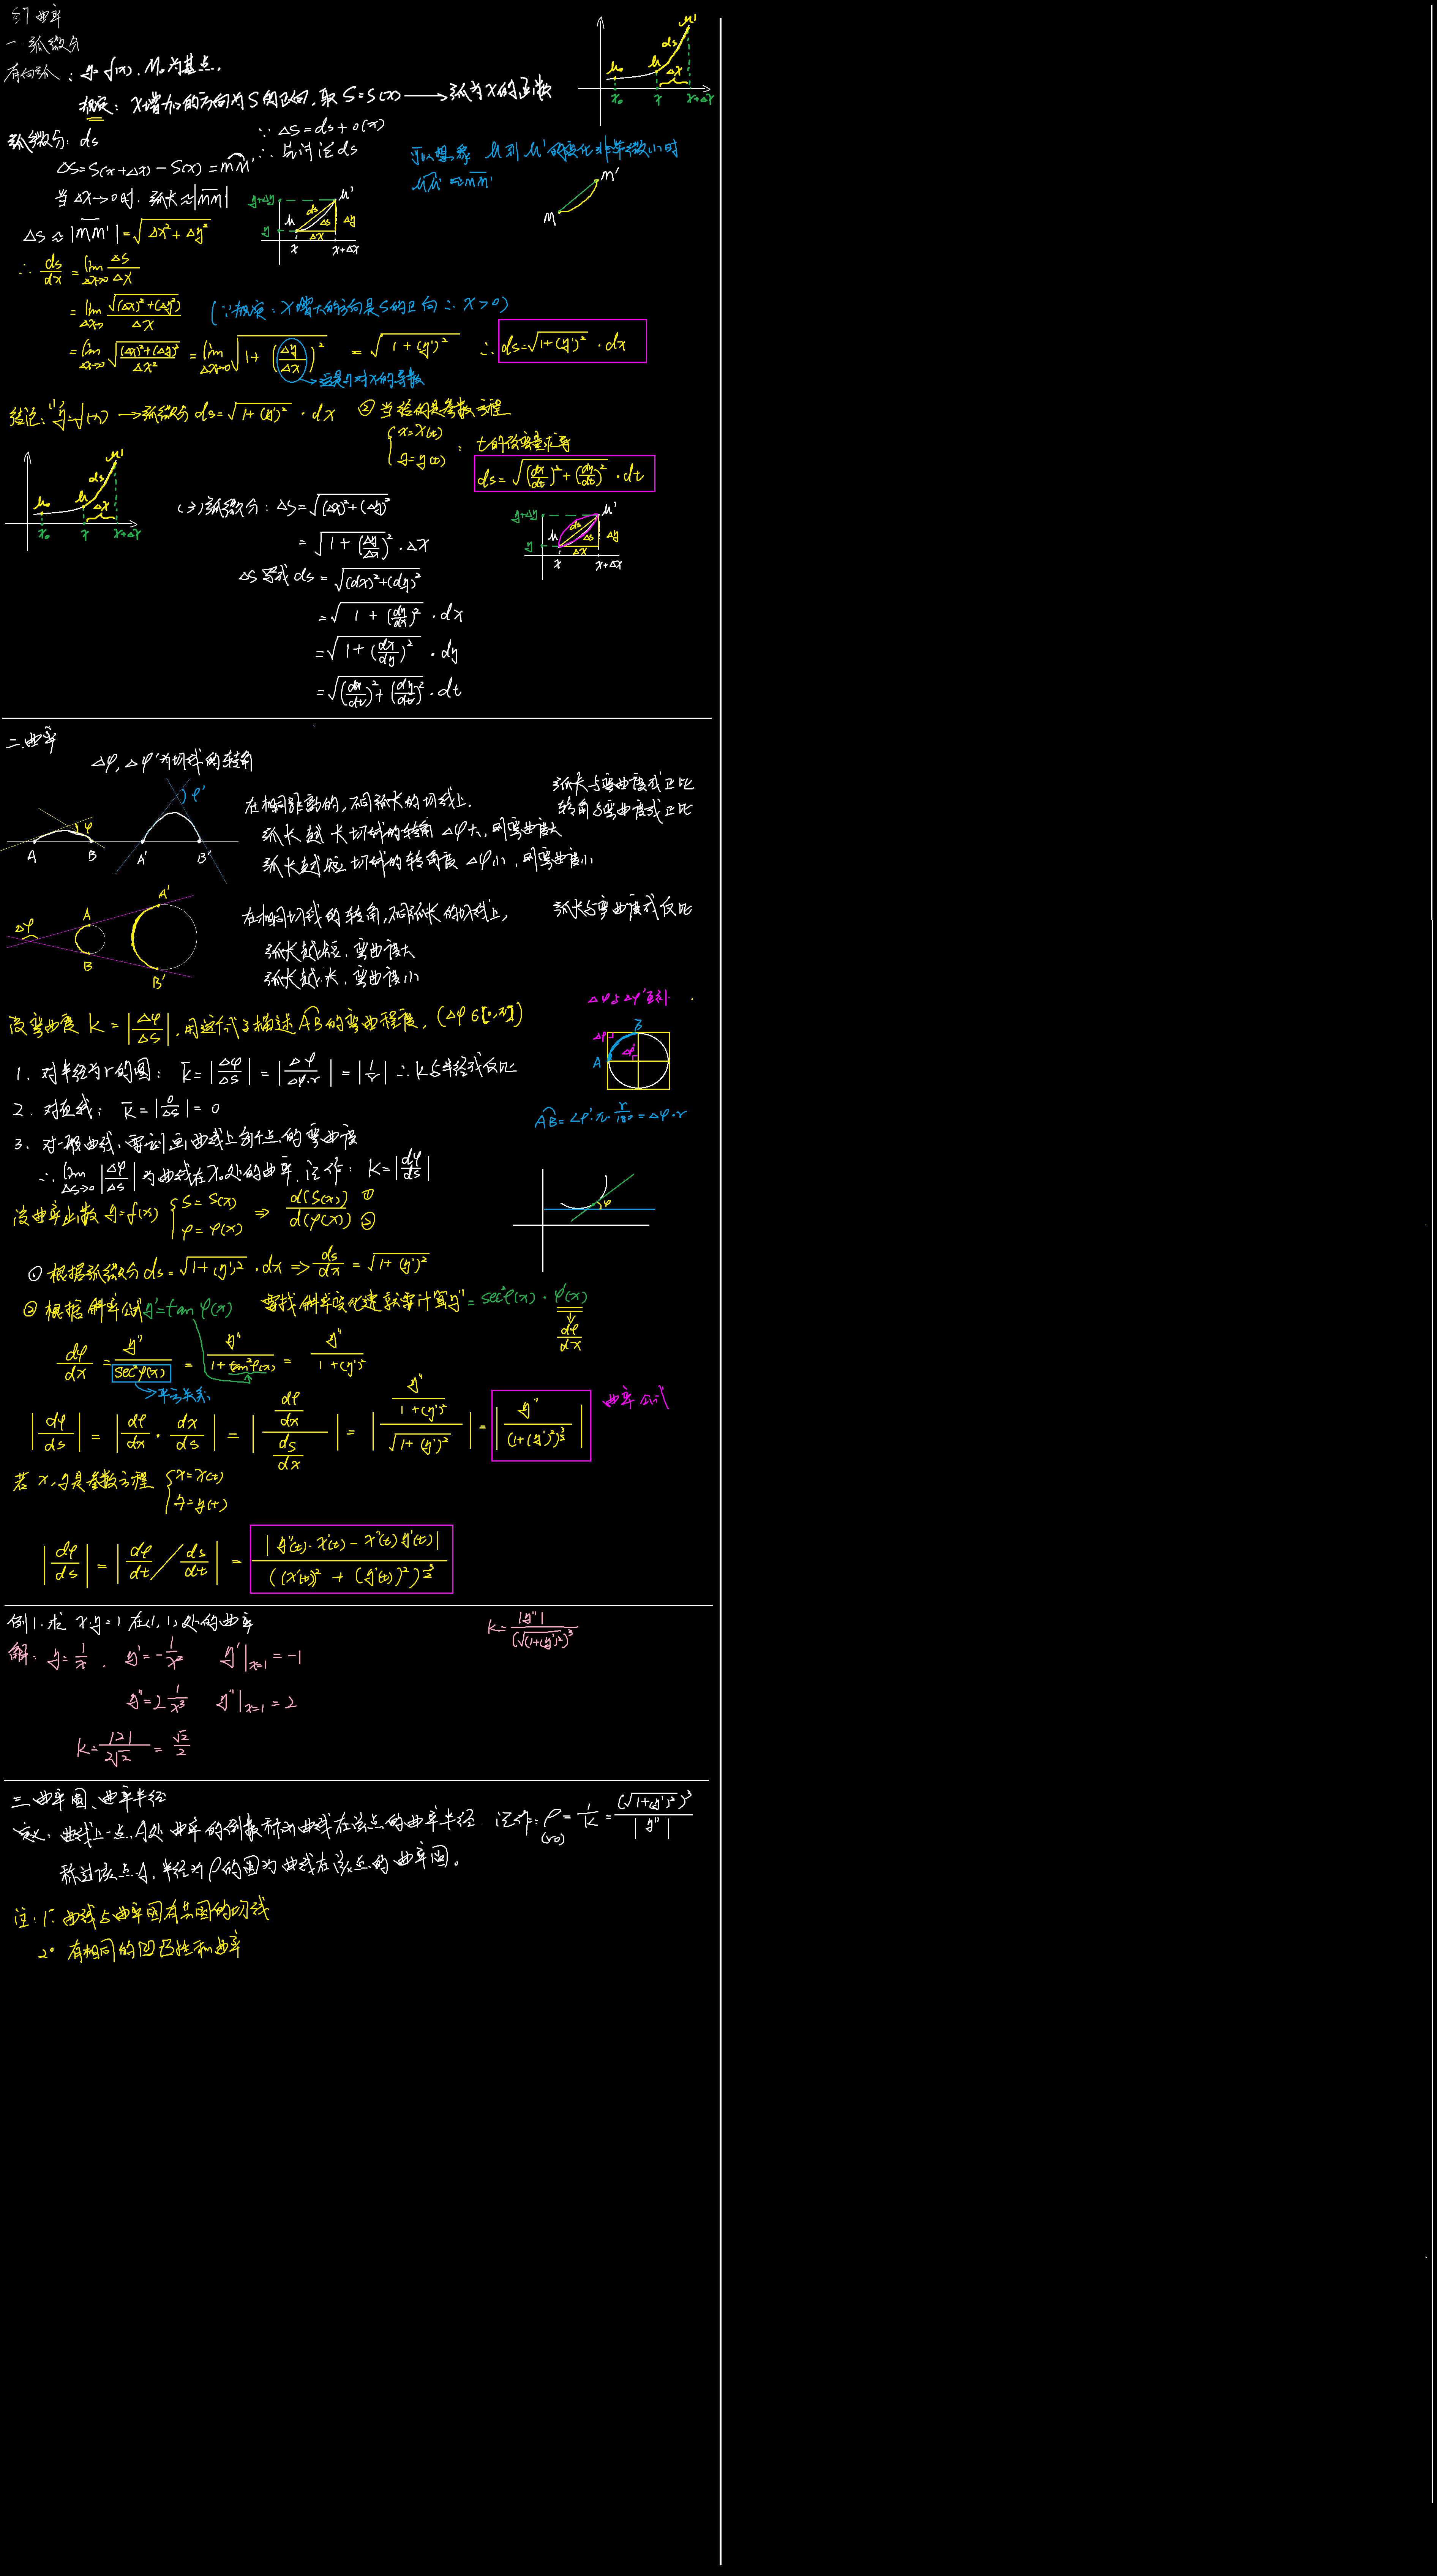 §7 曲率
一 弧微分
有向弧：y=f(x). M₀为基点.
规定：x增加的方向为S的正向，取 S=S(x) ⟶ 弧为x的函数
弧微分：ds
∵ ΔS = ds + o(x)
ΔS = S(x+Δx) − S(x) = MM', ∴ 先讨论ds
可以想象 M到M'的变化非常微小时
MM' ≈ MM'
当 Δx→0时. 弧长≈|MM'|
ΔS ≈ |MM'| = √(Δx²+Δy²)
∴ ds/dx = lim Δx→0 ΔS/Δx
= lim Δx→0 √((Δx)²+(Δy)²)/Δx (∵规定：x增大的方向是S的正向 ∴ x>0)
= lim Δx→0 √(((Δx)²+(Δy)²)/Δx²) = lim Δx→0 √(1+(Δy/Δx)²) = √(1+(y')²) ∴ ds=√(1+(y')²)·dx
→这是y对x的导数
结论：(1) y=f(x) ⟶ 弧微分 ds=√(1+(y')²)·dx ② 当给的是参数方程
{x=x(t) y=y(t)： t的该变量求导
ds=√((dx/dt)²+(dy/dt)²)·dt
(3) 弧微分：ΔS=√((Δx)²+(Δy)²)
= √(1+(Δy/Δx)²)·Δx
ΔS 写成 ds = √((dx)²+(dy)²)
= √(1+(dy/dx)²)·dx
= √(1+(dx/dy)²)·dy
= √((dx/dt)²+(dy/dt)²)·dt
二.曲率
Δφ, Δφ'为切线的转角
在相同距离的，不同弧长的切线上. 弧长与弯曲度成正比
转角与弯曲度成正比
弧长越长 切线的转角Δφ大，则弯曲度大
弧长越短 切线的转角度Δφ小，则弯曲度小
在相同切线的转角，不同弧长的切线上， 弧长与弯曲度成反比
弧长越短，弯曲度大
弧长越长，弯曲度小
Δφ与Δφ'互补
设弯曲度 K=|Δφ/ΔS|，用这个式子描述AB的弯曲程度，
1. 对半径为r的圆： K=|Δφ/ΔS| = |Δφ/Δφ·r| = |1/r| ∴ K与半径成反比
2. 对直线： K=|0/ΔS|=0
AB=∠φ'·π·r/180=Δφ·r
3. 对一般曲线，要刻画曲线上每个点的弯曲度
∴ lim ΔS→0 |Δφ/ΔS| 为曲线在x₀处的曲率. 记作： K=|dφ/ds|
设曲率函数 y=f(x) {S=S(x) φ=φ(x) ⇒ d(S(x)) ① / d(φ(x)) ②
① 根据弧微分 ds=√(1+(y')²)·dx ⇒ ds/dx=√(1+(y')²)
② 根据斜率公式 y'=tan φ(x) 要找斜率变化速就要计算y''=sec²φ(x)·φ'(x)
↓ dφ/dx
dφ/dx = y''/sec²φ(x) = y''/(1+tan²φ(x)) = y''/(1+(y')²)
→平方关系
|dφ/ds| = |dφ/dx · dx/ds| = |(dφ/dx)/(ds/dx)| = |(y''/(1+(y')²))/√(1+(y')²)| = |y''/(1+(y')²)^(3/2)| 曲率公式
若 x,y是参数方程 {x=x(t) y=y(t)
|dφ/ds| = |dφ/dt / ds/dt| = |y''(t)·x'(t) − x''(t)y'(t)| / ((x'(t))²+(y'(t))²)^(3/2)
例1. 求 x·y=1 在(1,1)处的曲率
K=|y''|/(√(1+(y')²))³
解：y=1/x, y'=−1/x² y'|x=1 = −1
y''=2 1/x³ y''|x=1 = 2
K=|2|/2√2 = √2/2
三.曲率圆、曲率半径
定义：曲线上一点A处曲率的倒数称为曲线在该点的曲率半径. 记作：ρ=1/K=(√(1+(y')²))³/|y''|
称过该点A，半径为ρ的圆为曲线在该点的曲率圆。
注：1° 曲线与曲率圆有共同的切线
2° 有相同的凹凸性和曲率